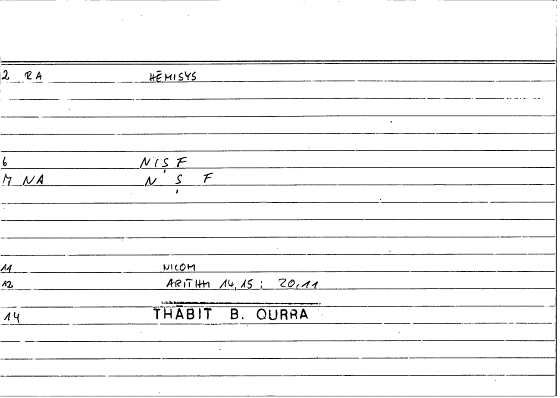 2 RA HĒMISYS
6 NIṢF
M NA N Ṣ F
11 NICOM
12 ARITHM 14,15 ; 20,11
14 THĀBIT B. QURRA